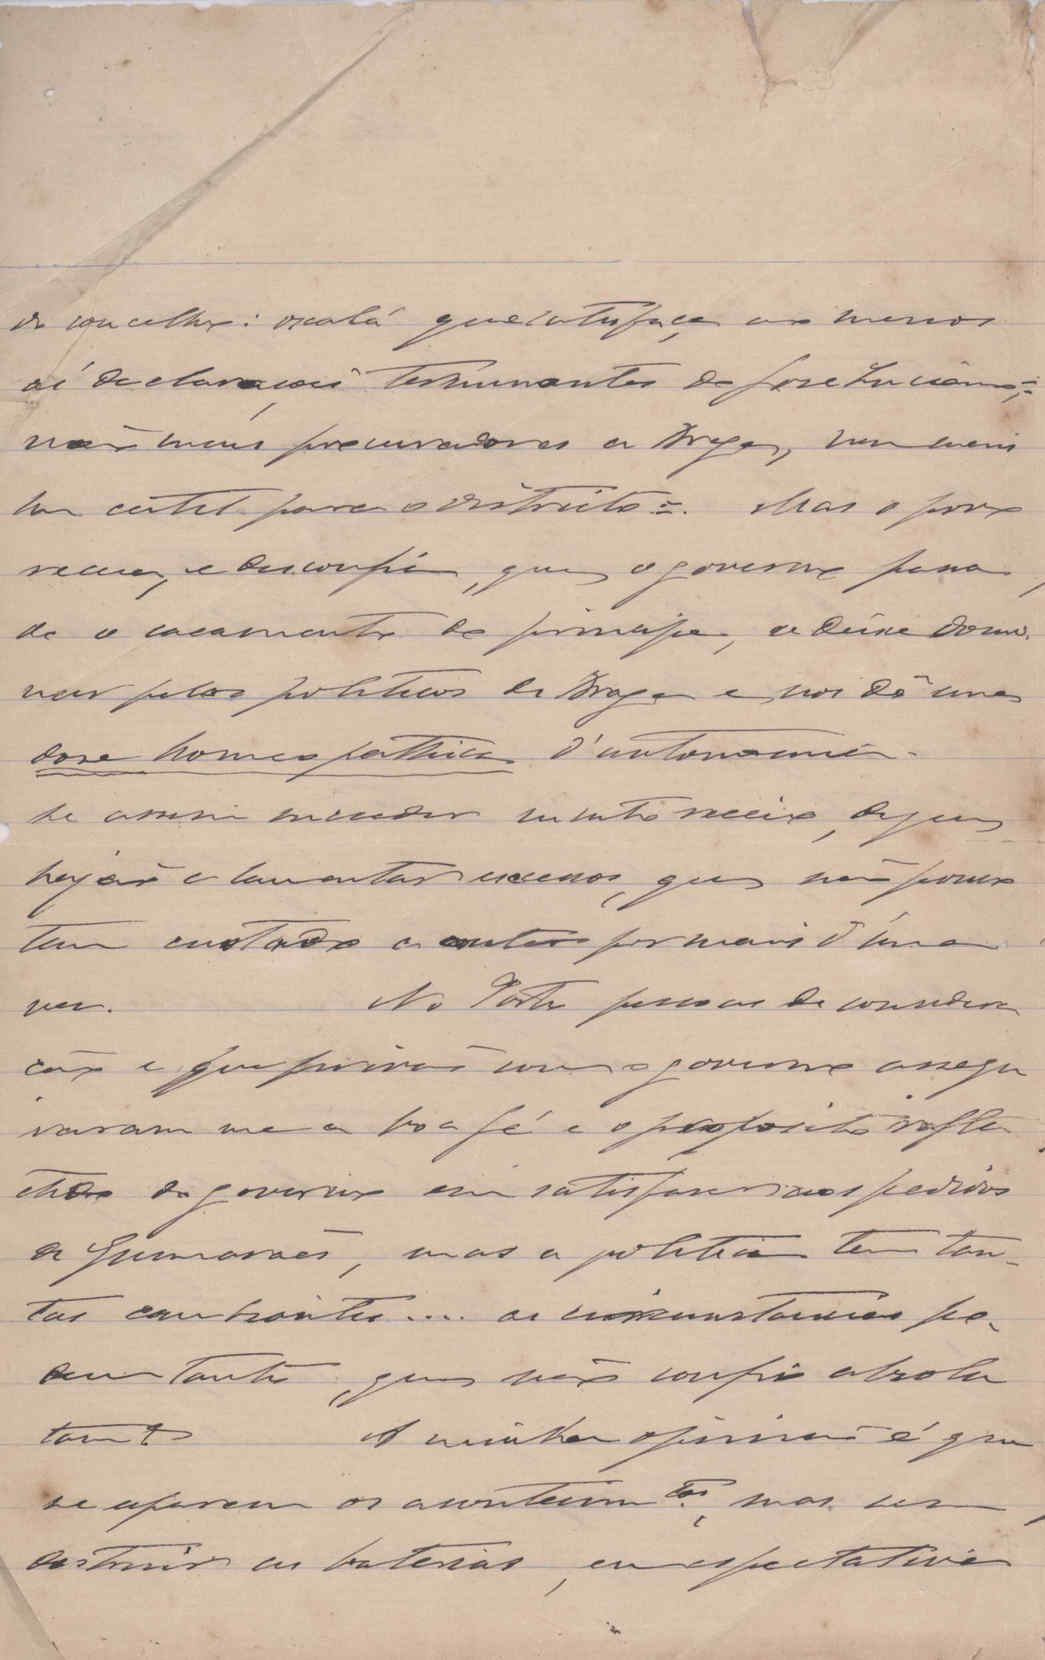 do concelho: oxalá que satisfaça ao menos
ás declarações terminantes de José Luciano;=
não mais procuradores a Braga, nem mais
um ceitil para o districto=. Mas o povo
receia, e desconfia, que o governo passa,
do o casamento do principe, se deixe domi-
nar pelos politicos de Braga e nos dê uma
dose homeopathica d'autonomia.
Se assim succeder muito receio, de que
hajão a lamentar excessos, que não pouco
tem custado a conter por mais d'uma
vez. No Porto pessoas de considera
ção e que privão com o governo assegu
raram me a boa fé e o proposito refle
ctido do governo em satisfazer aos pedidos
de Guimarães, mas a politica tem tan-
tas cambiantes.... as circunstancias po-
dem tanto, que não confio absolu
tamte A minha opinião é que
se esperem os acontecim.tos, mas sem,
destruir as baterias, em espectativa